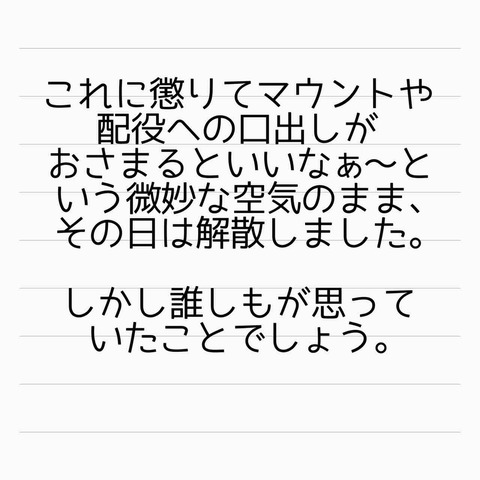 これに懲りてマウントや
配役への口出しが
おさまるといいなぁ〜と
いう微妙な空気のまま、
その日は解散しました。
しかし誰しもが思って
いたことでしょう。